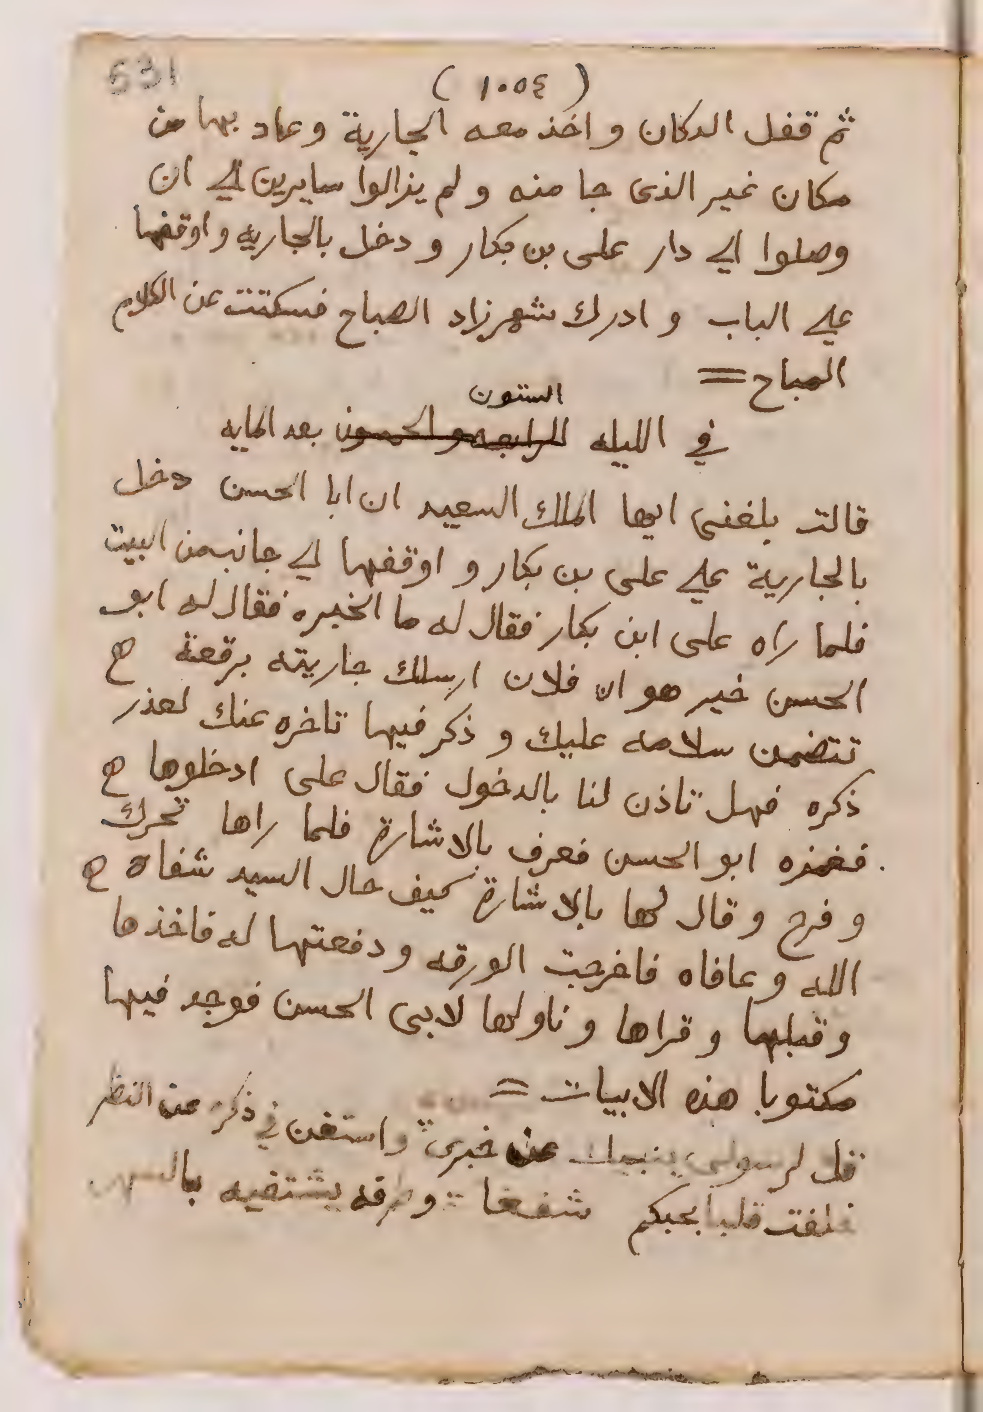 531
( ١٠٥٤ )
ثم قفل الدكان و اخذ معه الجارية و عاد بها من
مكان غير الذى جا منه و لم يزالوا سايرين الى ان
وصلوا الى دار على بن بكار و دخل بالجاريه و اوقفها
على الباب و ادرك شهرزاد الصباح فسكتت عن الكلام
المباح =
الستون
في الليله الرابعه و الخمسون بعد المايه
قالت بلغنى ايها الملك السعيد ان ابا الحسن دخل
بالجارية على على بن بكار و اوقفها الى جانب من البيت
فلما راه على ابن بكار فقال له ما الخبره فقال له ابو
الحسن خير هو ان فلان ارسلك جاريته برقعة
تتضمن سلامه عليك و ذكر فيها تاخره عنك لعذر
ذكره فهل تاذن لنا بالدخول فقال على ادخلوها
فغمزه ابو الحسن فعرف بالاشارة فلما راها تحرك
و فرح و قال لها بالاشارة كيف حال السيد شفاه
الله و عافاه فاخرجت الورقه و دفعتها له فاخذها
و قبلها و قراها و ناولها لابى الحسن فوجد فيها
مكتوبا هذه الابيات =
قل لرسولى ينبيك عن خبرى و استغن في ذكره عن النظر
خلفت قلبا بحبكم شغفا و طرفه يشتفيه